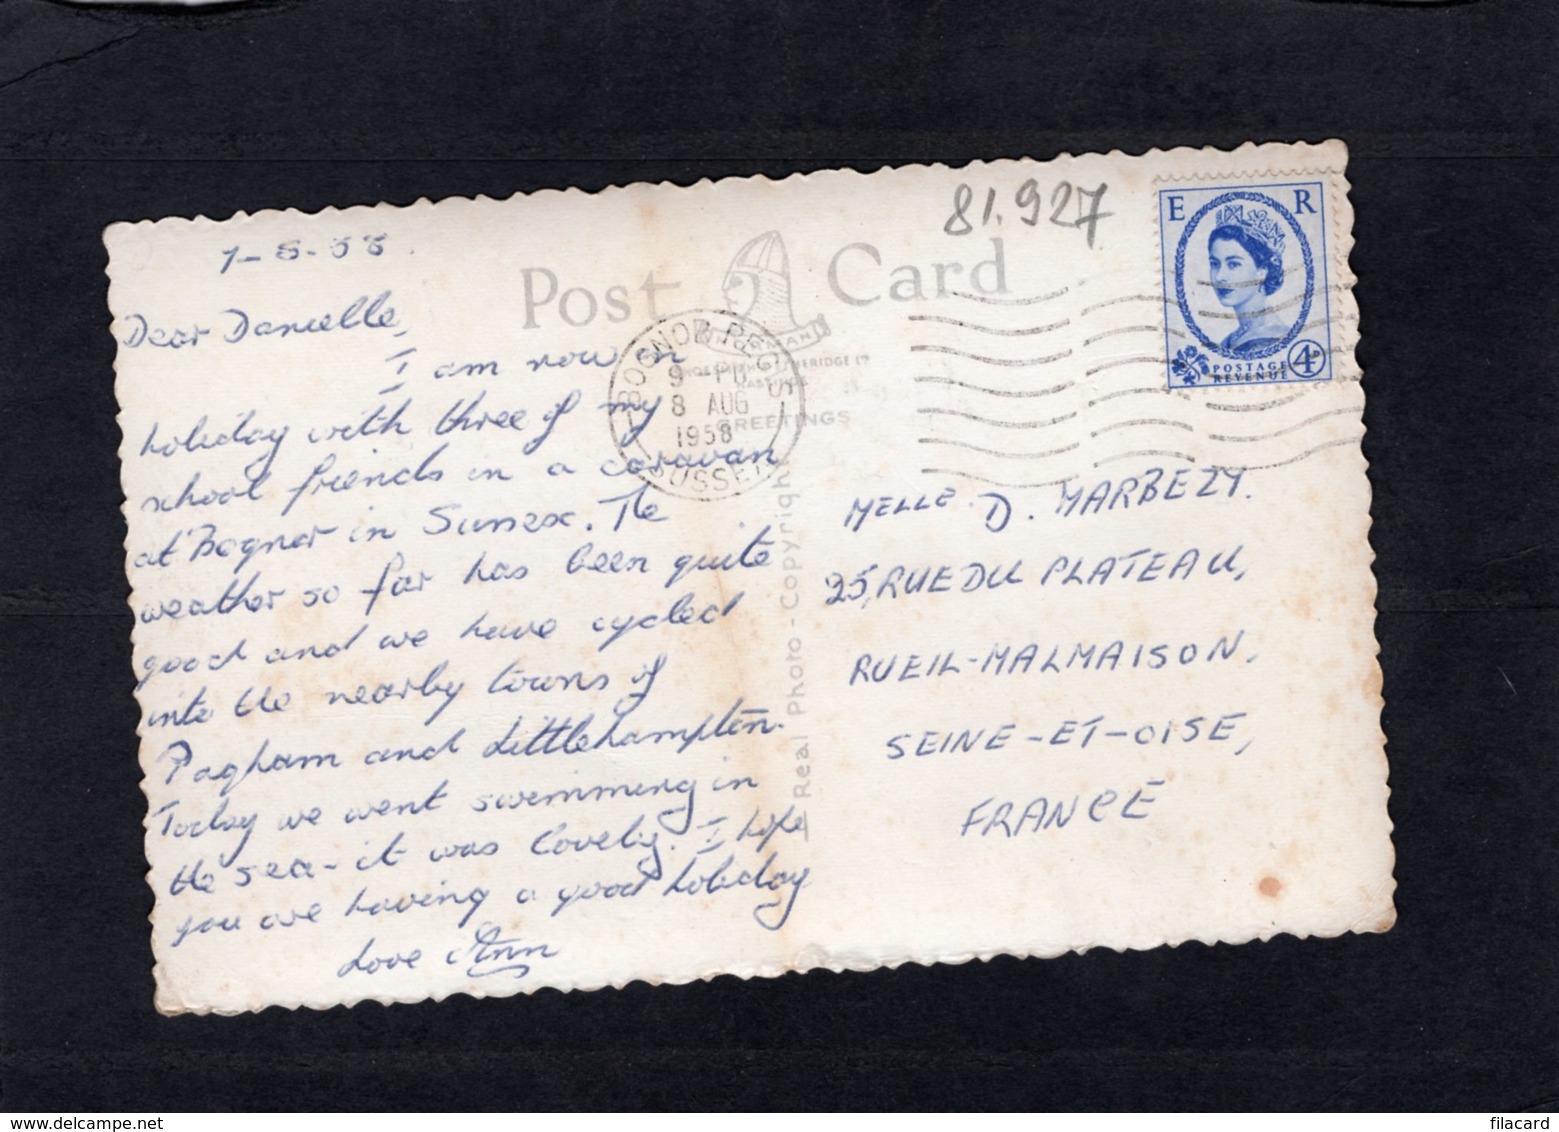 81.927
E R
POSTAGE
REVENUE
4D
Post Card
NORMAN
GREETINGS
BOGNOR REGIS
9 - PM
8 AUG
1958
SUSSEX
Real Photo - Copyright
Dear Danielle,
I am now on
holiday with three of my
school friends in a caravan
at Bognor in Sussex. The
weather so far has been quite
good and we have cycled
into the nearby towns of
Pagham and Littlehampton.
Today we went swimming in
the sea - it was lovely. I hope
you are having a good holiday
Love Ann
MELLE. D. MARBEZY.
25, RUE DU PLATEAU,
RUEIL-MALMAISON,
SEINE-ET-OISE,
FRANCE
filacard